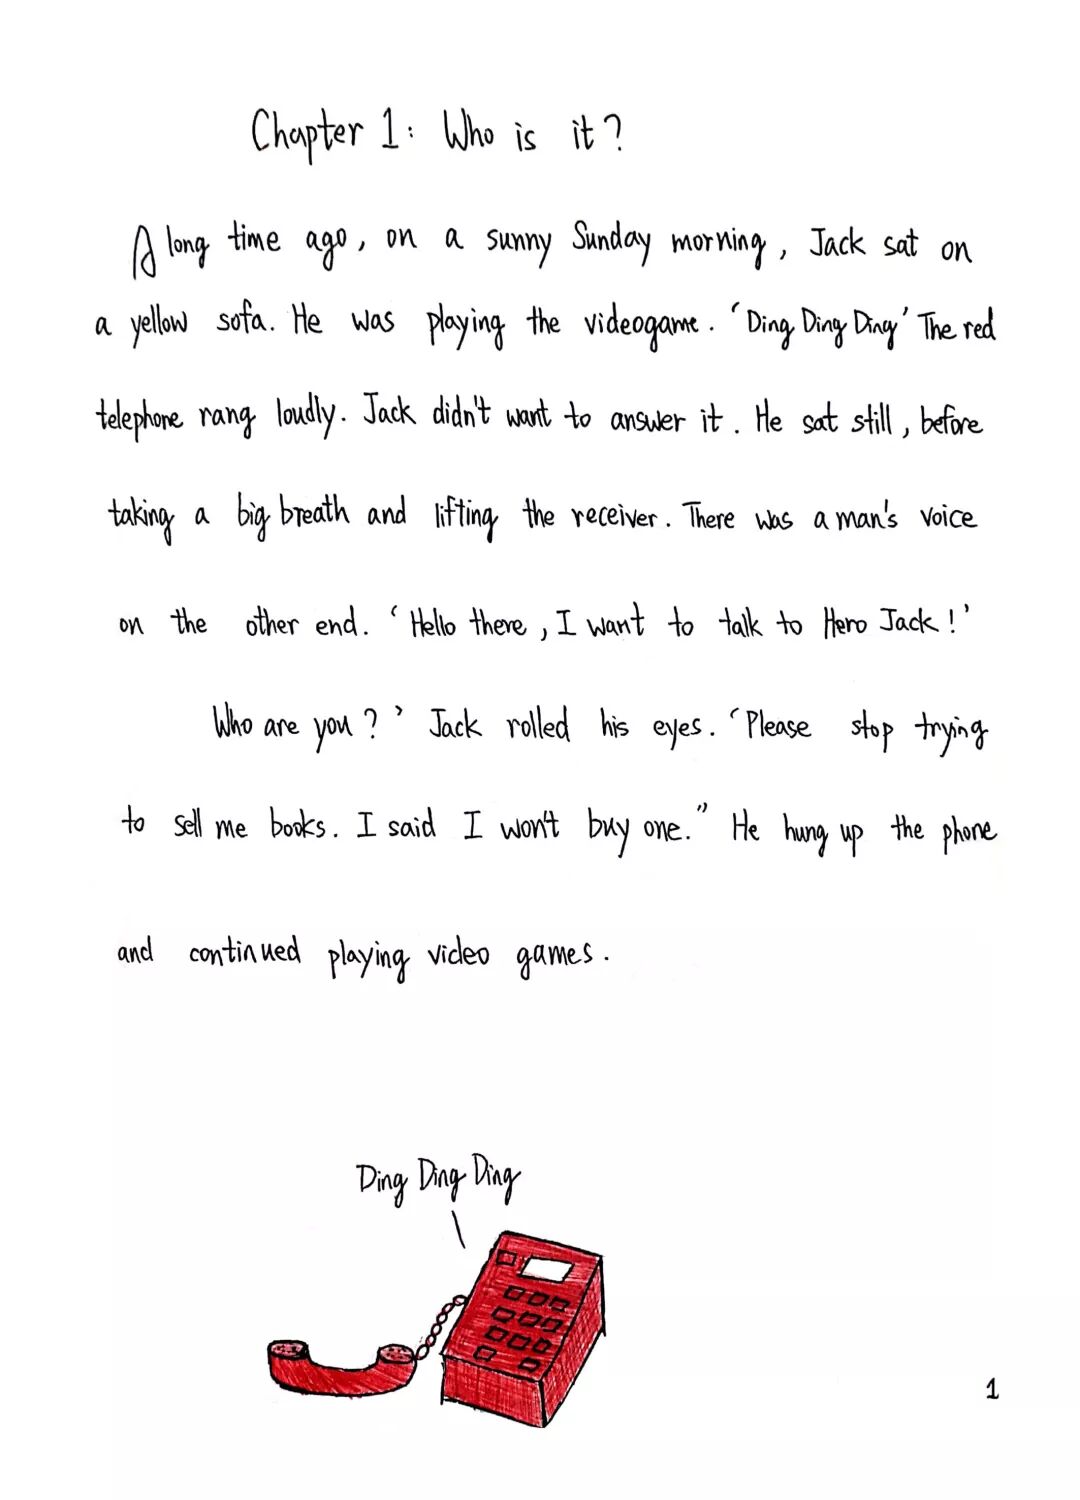 Chapter 1: Who is it?
A long time ago, on a sunny Sunday morning, Jack sat on
a yellow sofa. He was playing the videogame. ‘Ding Ding Ding’ The red
telephone rang loudly. Jack didn't want to answer it. He sat still, before
taking a big breath and lifting the receiver. There was a man's voice
on the other end. ‘Hello there, I want to talk to Hero Jack!’
Who are you?’ Jack rolled his eyes. ‘Please stop trying
to sell me books. I said I won't buy one.” He hung up the phone
and continued playing video games.
Ding Ding Ding
1